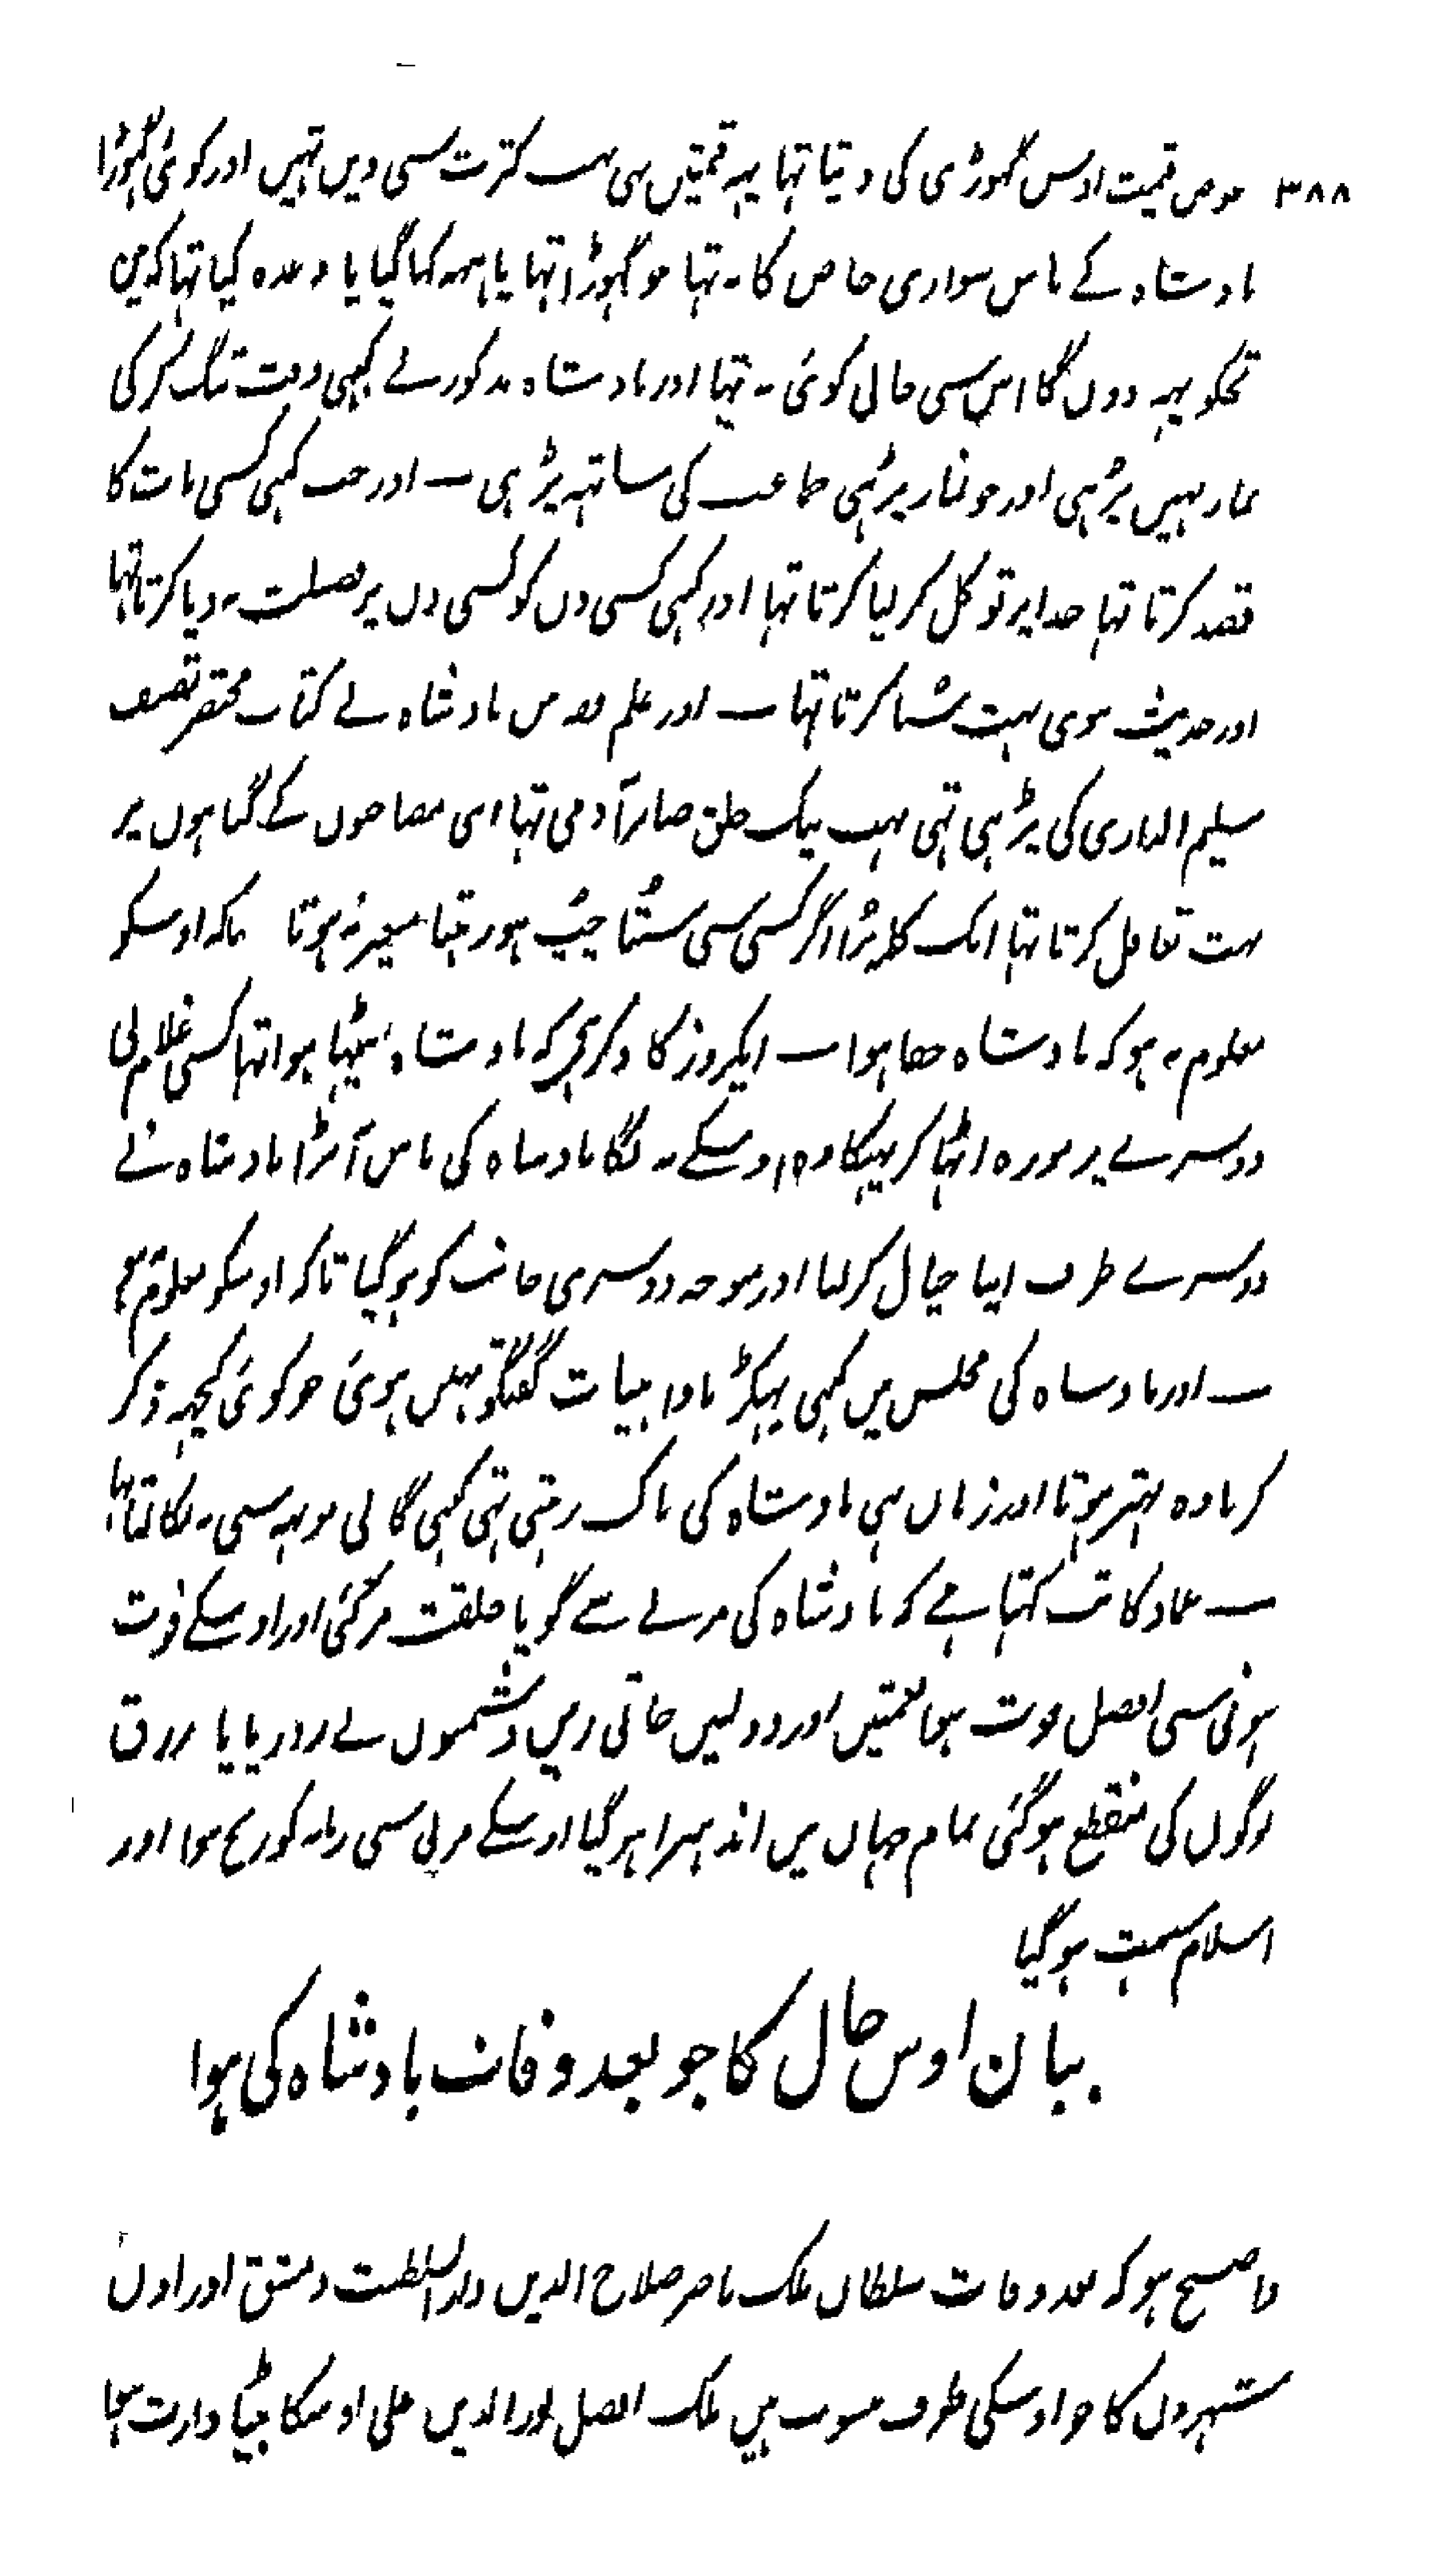 ٣٨٨ عوض قیمت اوس گھوڑی کی دیتا تہا یہہ قیمتیں بہی بہت کثرت سی دیں تہیں اور کوئی گہوڑا
بادشاہ کے پاس سواری خاص کا نہ تہا جو گہوڑا تہا یا ہبہ کیا گیا یا وعدہ کیا تہا کہ میں
تجکو یہہ دوں گا اس سی خالی کوئی نہ تہا اور بادشاہ مذکور نے کبہی وقت تنگ کر کی
نماز نہیں پڑہی اور جو نماز پڑہی جماعت کی ساتہہ پڑہی ـــ اور جب کبہی کسی بات کا
قصد کرتا تہا خدا پر توکل کر لیا کرتا تہا اور کبہی کسی دن کو کسی دن پر فضیلت نہ دیا کرتا تہا
اور حدیث نبوی بہت سنا کرتا تہا ـــ اور علم فقہ میں بادشاہ نے کتاب مختصر تصنیف
سلیم الرازی کی پڑہی تہی بہت نیک خلق صابر آدمی تہا اپنی مصاحبوں کے گناہوں پر
بہت تغافل کرتا تہا ایک کلمہ بُرا اگر کسی سی سنتا چپ ہو رہتا متغیر نہ ہوتا تاکہ اوسکو
معلوم نہ ہو کہ بادشاہ خفا ہوا ـــ ایکروز کا ذکر ہی کہ بادشاہ بیٹہا ہوا تہا کسی غلام نی
دوسرے پر موزہ اٹہا کر پہیکا وہ اوسکے نہ لگا بادشاہ کی پاس آ پڑا بادشاہ نے
دوسرے طرف اپنا خیال کر لیا اور متوجہ دوسری جانب کو ہو گیا تاکہ اوسکو معلوم نہو
ـــ اور بادشاہ کی مجلس میں کبہی پہکڑ یا واہیات گفتگو نہیں ہوئی جو کوئی کچہہ ذکر
کرتا وہ بہتر ہوتا اور زبان بہی بادشاہ کی پاک رہتی تہی کبہی گالی مونہہ سی نہ نکالتا تہا
ـــ عماد کاتب کہتا ہے کہ بادشاہ کی مرنے سے گویا خلقت مر گئی اور اوسکے فوت
ہونی سی افضل فوت ہوا نعمتیں اور دولتیں جاتی رہیں دشمنوں نے زور پایا رزق
لوگوں کی منقطع ہو گئی تمام جہاں میں اندہیرا ہو گیا اوسکے مرنی سی زمانہ کو رنج ہوا اور
اسلام سست ہو گیا
بیان اوس حال کا جو بعد وفات بادشاہ کی ہوا
واضح ہو کہ بعد وفات سلطان ملک ناصر صلاح الدین دار السلطنت دمشق اور اون
شہروں کا جو اوسکی طرف منسوب ہیں ملک افضل نور الدین علی اوسکا بیٹا وارث ہوا